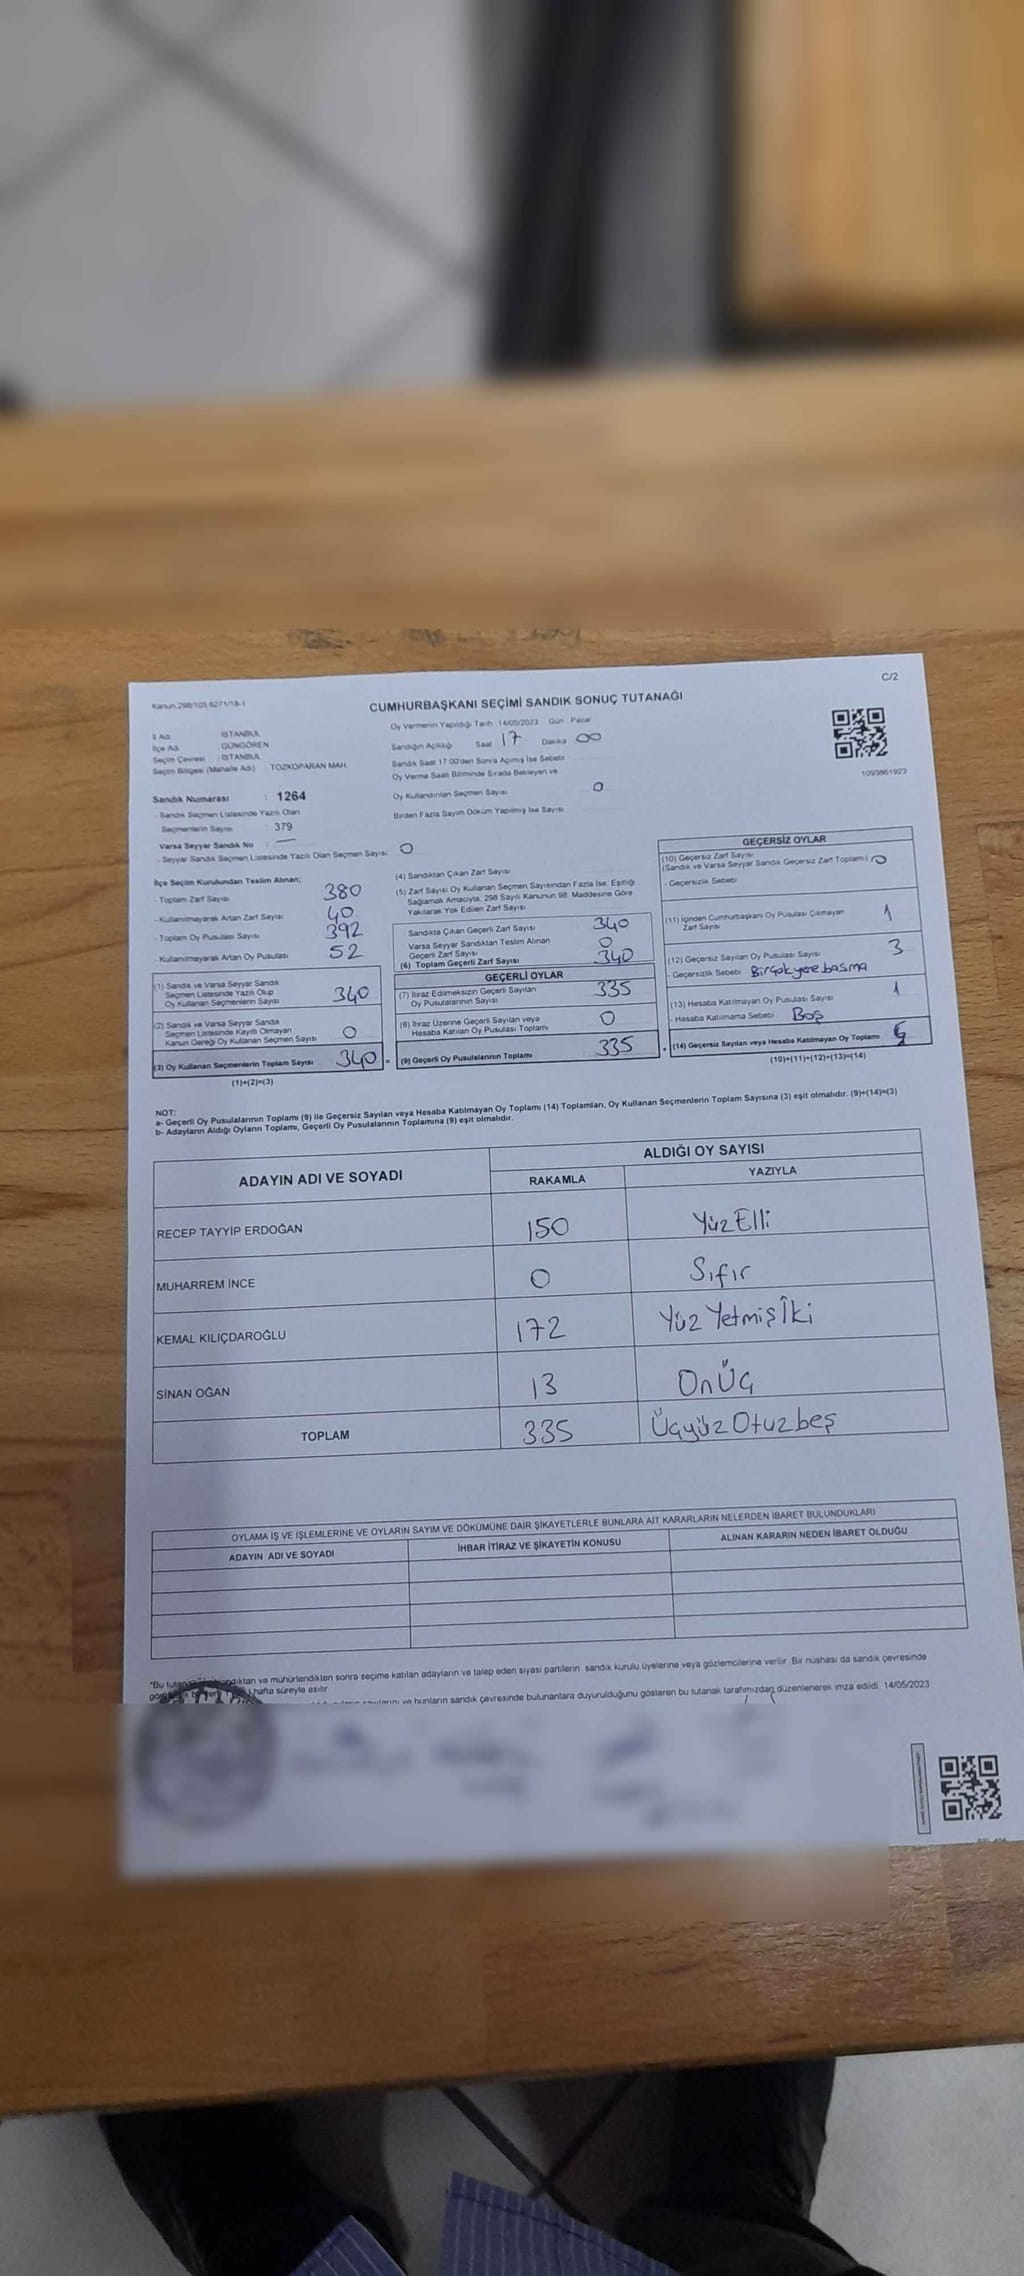 Kanun.298/105,6271/18-1
C/2
CUMHURBAŞKANI SEÇİMİ SANDIK SONUÇ TUTANAĞI
İl Adı : İSTANBUL
İlçe Adı : GÜNGÖREN
Seçim Çevresi : İSTANBUL
Seçim Bölgesi (Mahalle Adı) : TOZKOPARAN MAH.
Sandık Numarası : 1264
- Sandık Seçmen Listesinde Yazılı Olan
Seçmenlerin Sayısı : 379
Varsa Seyyar Sandık No : —
- Seyyar Sandık Seçmen Listesinde Yazılı Olan Seçmen Sayısı: 0
Oy Vermenin Yapıldığı Tarih :14/05/2023 Gün : Pazar
Sandığın Açıldığı Saat 17 Dakika 00
Sandık Saat 17.00'den Sonra Açımış İse Sebebi
Oy Verme Saati Bitiminde Sırada Bekleyen ve
Oy Kullandırılan Seçmen Sayısı 0
Birden Fazla Sayım Döküm Yapılmış İse Sayısı
1093861923
İlçe Seçim Kurulundan Teslim Alınan;
- Toplam Zarf Sayısı 380
- Kullanılmayarak Artan Zarf Sayısı 40
- Toplam Oy Pusulası Sayısı 392
- Kullanılmayarak Artan Oy Pusulası 52
(1) Sandık ve Varsa Seyyar Sandık
Seçmen Listesinde Yazılı Olup
Oy Kullanan Seçmenlerin Sayısı 340
(2) Sandık ve Varsa Seyyar Sandık
Seçmen Listesinde Kayıtlı Olmayan
Kanun Gereği Oy Kullanan Seçmen Sayısı 0
(3) Oy Kullanan Seçmenlerin Toplam Sayısı 340 =
(1)+(2)=(3)
(4) Sandıktan Çıkan Zarf Sayısı
(5) Zarf Sayısı Oy Kullanan Seçmen Sayısından Fazla İse, Eşitliği
Sağlamak Amacıyla, 298 Sayılı Kanunun 98. Maddesine Göre
Yakılarak Yok Edilen Zarf Sayısı
Sandıkta Çıkan Geçerli Zarf Sayısı 340
Varsa Seyyar Sandıktan Teslim Alınan
Geçerli Zarf Sayısı 0
(6) Toplam Geçerli Zarf Sayısı 340
GEÇERLİ OYLAR
(7) İtiraz Edilmeksizin Geçerli Sayılan
Oy Pusulalarının Sayısı 335
(8) İtiraz Üzerine Geçerli Sayılan veya
Hesaba Katılan Oy Pusulası Toplamı 0
(9) Geçerli Oy Pusulalarının Toplamı 335 +
GEÇERSİZ OYLAR
(10) Geçersiz Zarf Sayısı
(Sandık ve Varsa Seyyar Sandık Geçersiz Zarf Toplamı) 0
- Geçersizlik Sebebi
(11) İçinden Cumhurbaşkanı Oy Pusulası Çıkmayan
Zarf Sayısı 1
(12) Geçersiz Sayılan Oy Pusulası Sayısı 3
- Geçersizlik Sebebi Birçok yere basma
(13) Hesaba Katılmayan Oy Pusulası Sayısı 1
- Hesaba Katılmama Sebebi Boş
(14) Geçersiz Sayılan veya Hesaba Katılmayan Oy Toplamı 5
(10)+(11)+(12)+(13)=(14)
NOT:
a- Geçerli Oy Pusulalarının Toplamı (9) ile Geçersiz Sayılan veya Hesaba Katılmayan Oy Toplamı (14) Toplamları, Oy Kullanan Seçmenlerin Toplam Sayısına (3) eşit olmalıdır. (9)+(14)=(3)
b- Adayların Aldığı Oyların Toplamı, Geçerli Oy Pusulalarının Toplamına (9) eşit olmalıdır.
ADAYIN ADI VE SOYADI
ALDIĞI OY SAYISI
RAKAMLA YAZIYLA
RECEP TAYYİP ERDOĞAN 150 YüzElli
MUHARREM İNCE 0 Sıfır
KEMAL KILIÇDAROĞLU 172 Yüz Yetmişİki
SİNAN OĞAN 13 OnÜç
TOPLAM 335 Üçyüz Otuzbeş
OYLAMA İŞ VE İŞLEMLERİNE VE OYLARIN SAYIM VE DÖKÜMÜNE DAİR ŞİKAYETLERLE BUNLARA AİT KARARLARIN NELERDEN İBARET BULUNDUKLARI
ADAYIN ADI VE SOYADI İHBAR İTİRAZ VE ŞİKAYETİN KONUSU ALINAN KARARIN NEDEN İBARET OLDUĞU
"Bu mühürlendikten sonra seçime katılan adayların ve talep eden siyasi partilerin sandık kurulu üyelerine veya gözlemcilerine verilir. Bir nüshası da sandık çevresinde
hafta süreyle asılır.
ve bunların sandık çevresinde bulunanlara duyurulduğunu gösteren bu tutanak tarafımızdan düzenlenerek imza edildi. 14/05/2023